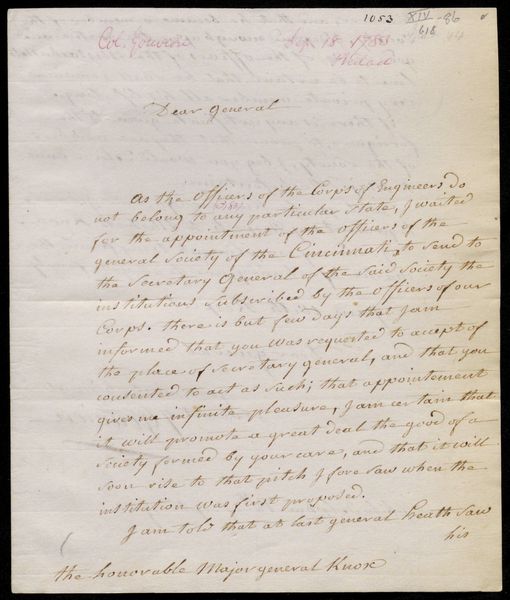 1053 XIV-86
618
Col. Gouvion Sep 18 1783
Dear General
As the officers of the Corps of Engineers do
not belong to any particular State, I waited
for the appointment of the officers of the
general Society of the Cincinnati, to send to
the Secretary General of the said Society the
institutions subscribed by the officers of our
Corps. there is but few days that I am
informed that you was requested to accept of
the place of Secretary general, and that you
consented to act as such; that appointement
gives me infinite pleasure, I am certam that
it will promote a great deal the good of a
society formed by your care, and that it will
soon rise to that pitch I foresaw when the
institution was first proposed.
I am told that at last general heath saw
his
the honorable Major general Knox